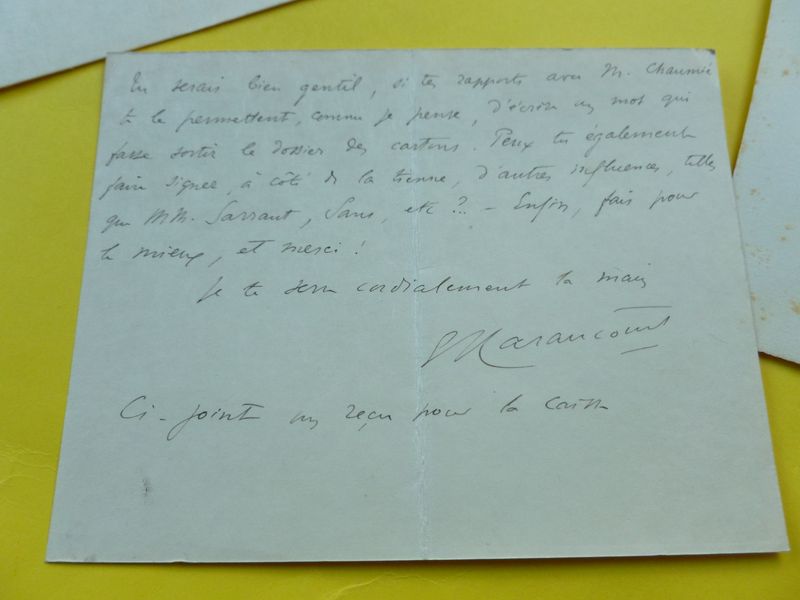 Tu serais bien gentil, si tes rapports avec M. Chaumié
te le permettent, comme je pense, d'écrire un mot qui
fasse sortir le dossier des cartons. Peux tu également
faire signer, à côté de la tienne, d'autres influences, telles
que MM. Sarraut, Sans, etc ? – Enfin, fais pour
le mieux, et merci !
Je te serre cordialement la main
Marancourt
Ci-joint un reçu pour la caisse